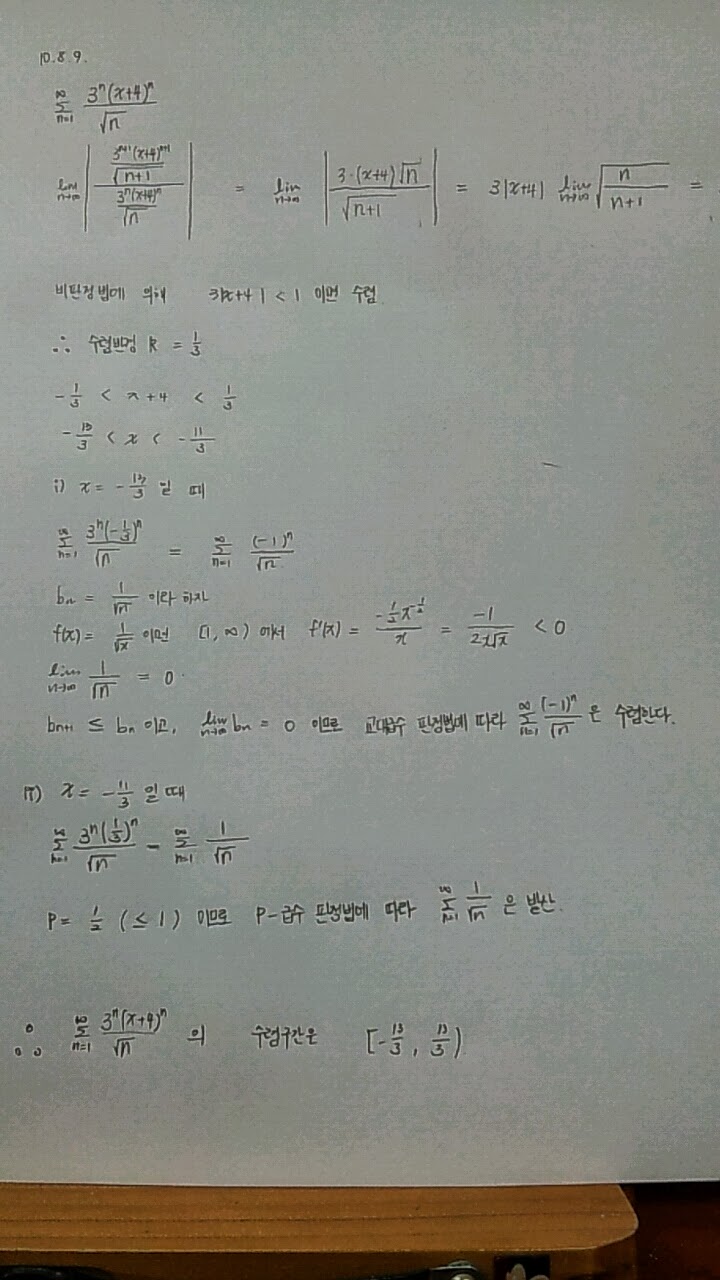 10.8.9.
∞Σn=1 3ⁿ(x+4)ⁿ/√n
lim n→∞ |(3ⁿ⁺¹(x+4)ⁿ⁺¹/√(n+1))/(3ⁿ(x+4)ⁿ/√n)| = lim n→∞ |3·(x+4)√n/√(n+1)| = 3|x+4| lim n→∞ √(n/(n+1)) =
비판정법에 의해 3|x+4| < 1 이면 수렴
∴ 수렴반경 R = 1/3
-1/3 < x+4 < 1/3
-13/3 < x < -11/3
i) x = -13/3 일 때
∞Σn=1 3ⁿ(-1/3)ⁿ/√n = ∞Σn=1 (-1)ⁿ/√n
bn = 1/√n 이라 하자
f(x) = 1/√x 이면 [1, ∞) 에서 f'(x) = (-1/2 x^(-1/2))/x = -1/(2x√x) < 0
lim n→∞ 1/√n = 0
bn+1 ≤ bn 이고, lim n→∞ bn = 0 이므로 교대급수 판정법에 따라 ∞Σn=1 (-1)ⁿ/√n 은 수렴한다.
ii) x = -11/3 일 때
∞Σn=1 3ⁿ(1/3)ⁿ/√n = ∞Σn=1 1/√n
P = 1/2 (≤ 1) 이므로 P-급수 판정법에 따라 ∞Σn=1 1/√n 은 발산.
∴ ∞Σn=1 3ⁿ(x+4)ⁿ/√n 의 수렴구간은 [-13/3, 13/3)